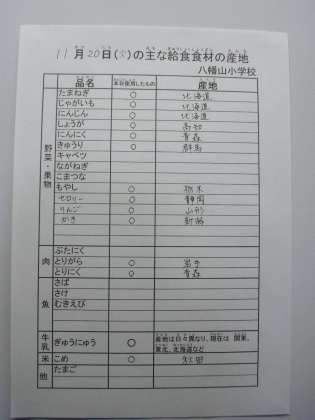 11月20日(火)の主な給食食材の産地
八幡山小学校
品名 本日使用したもの 産地
野菜・果物
たまねぎ ○ 北海道
じゃがいも ○ 北海道
にんじん ○ 北海道
しょうが ○ 高知
にんにく ○ 青森
きゅうり ○ 群馬
キャベツ
ながねぎ
こまつな
もやし ○ 栃木
セロリー ○ 静岡
りんご ○ 山形
かき ○ 新潟
肉
ぶたにく
とりがら ○ 岩手
とりにく ○ 青森
魚
さば
さけ
むきえび
牛乳 ぎゅうにゅう ○ 産地は日々異なり、現在は 関東、
東北、北海道など
米 こめ ○ 秋田
他 たまご